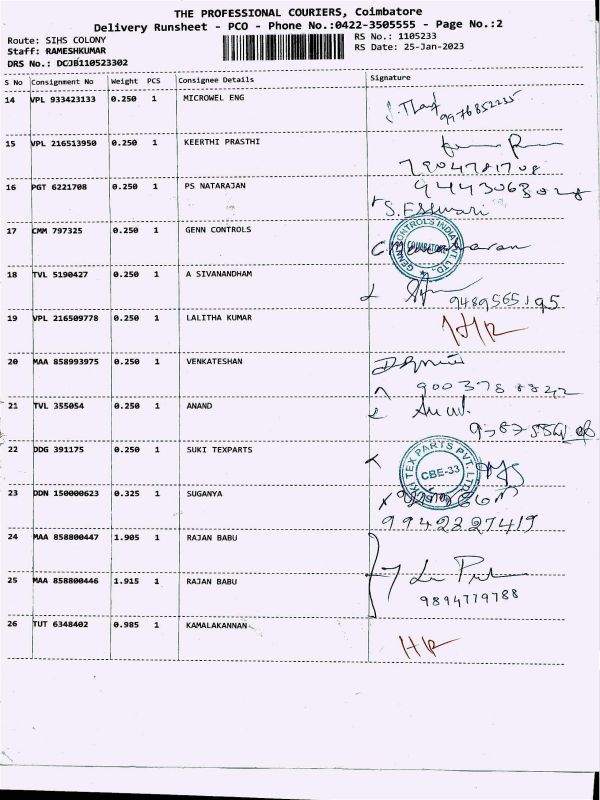 THE PROFESSIONAL COURIERS, Coimbatore
Delivery Runsheet - PCO - Phone No.:0422-3505555 - Page No.:2
Route: SIHS COLONY RS No.: 1105233
Staff: RAMESHKUMAR RS Date: 25-Jan-2023
DRS No.: DCJB110523302
S No Consignment No Weight PCS Consignee Details Signature
14 VPL 933423133 0.250 1 MICROWEL ENG
9976852235
15 VPL 216513950 0.250 1 KEERTHI PRASTHI
16 PGT 6221708 0.250 1 PS NATARAJAN
S. Eswari
17 CMM 797325 0.250 1 GENN CONTROLS
GENN CONTROLS INDIA PVT. LTD. COIMBATORE
18 TVL 5190427 0.250 1 A SIVANANDHAM
9489565195
19 VPL 216509778 0.250 1 LALITHA KUMAR
20 MAA 858993975 0.250 1 VENKATESHAN
21 TVL 355054 0.250 1 ANAND
22 DDG 391175 0.250 1 SUKI TEXPARTS
SUKI TEX PARTS PVT. LTD. CBE-33
23 DDN 150000623 0.325 1 SUGANYA
9942227419
24 MAA 858800447 1.905 1 RAJAN BABU
25 MAA 858800446 1.915 1 RAJAN BABU
9894779788
26 TUT 6348402 0.985 1 KAMALAKANNAN
HR